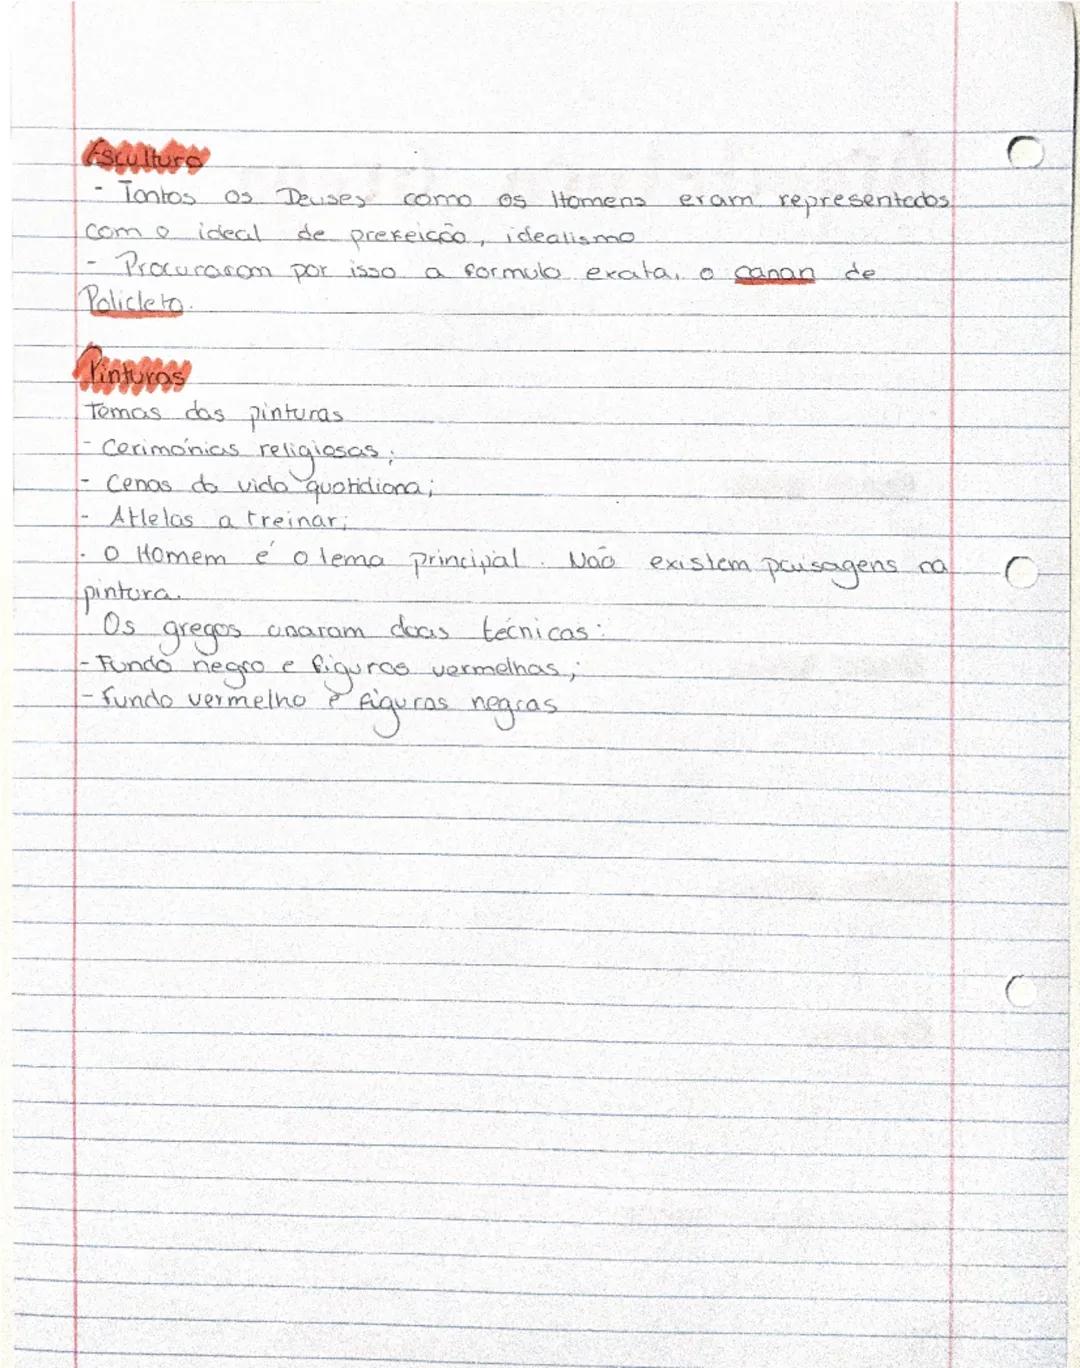 Escultura
- Tantos os Deuses como os Homens eram representados
com o ideal de prefeição, idealismo
- Procuraram por isso a formula exata, o canan de
Policleto.
Pinturas
Temas das pinturas
- Cerimónias religiosas;
- Cenas da vida quotidiana;
- Atletas a treinar;
. O Homem é o tema principal. Não existem paisagens na
pintura.
Os gregos usaram duas técnicas:
- Fundo negro e figuras vermelhas;
- fundo vermelho e figuras negras